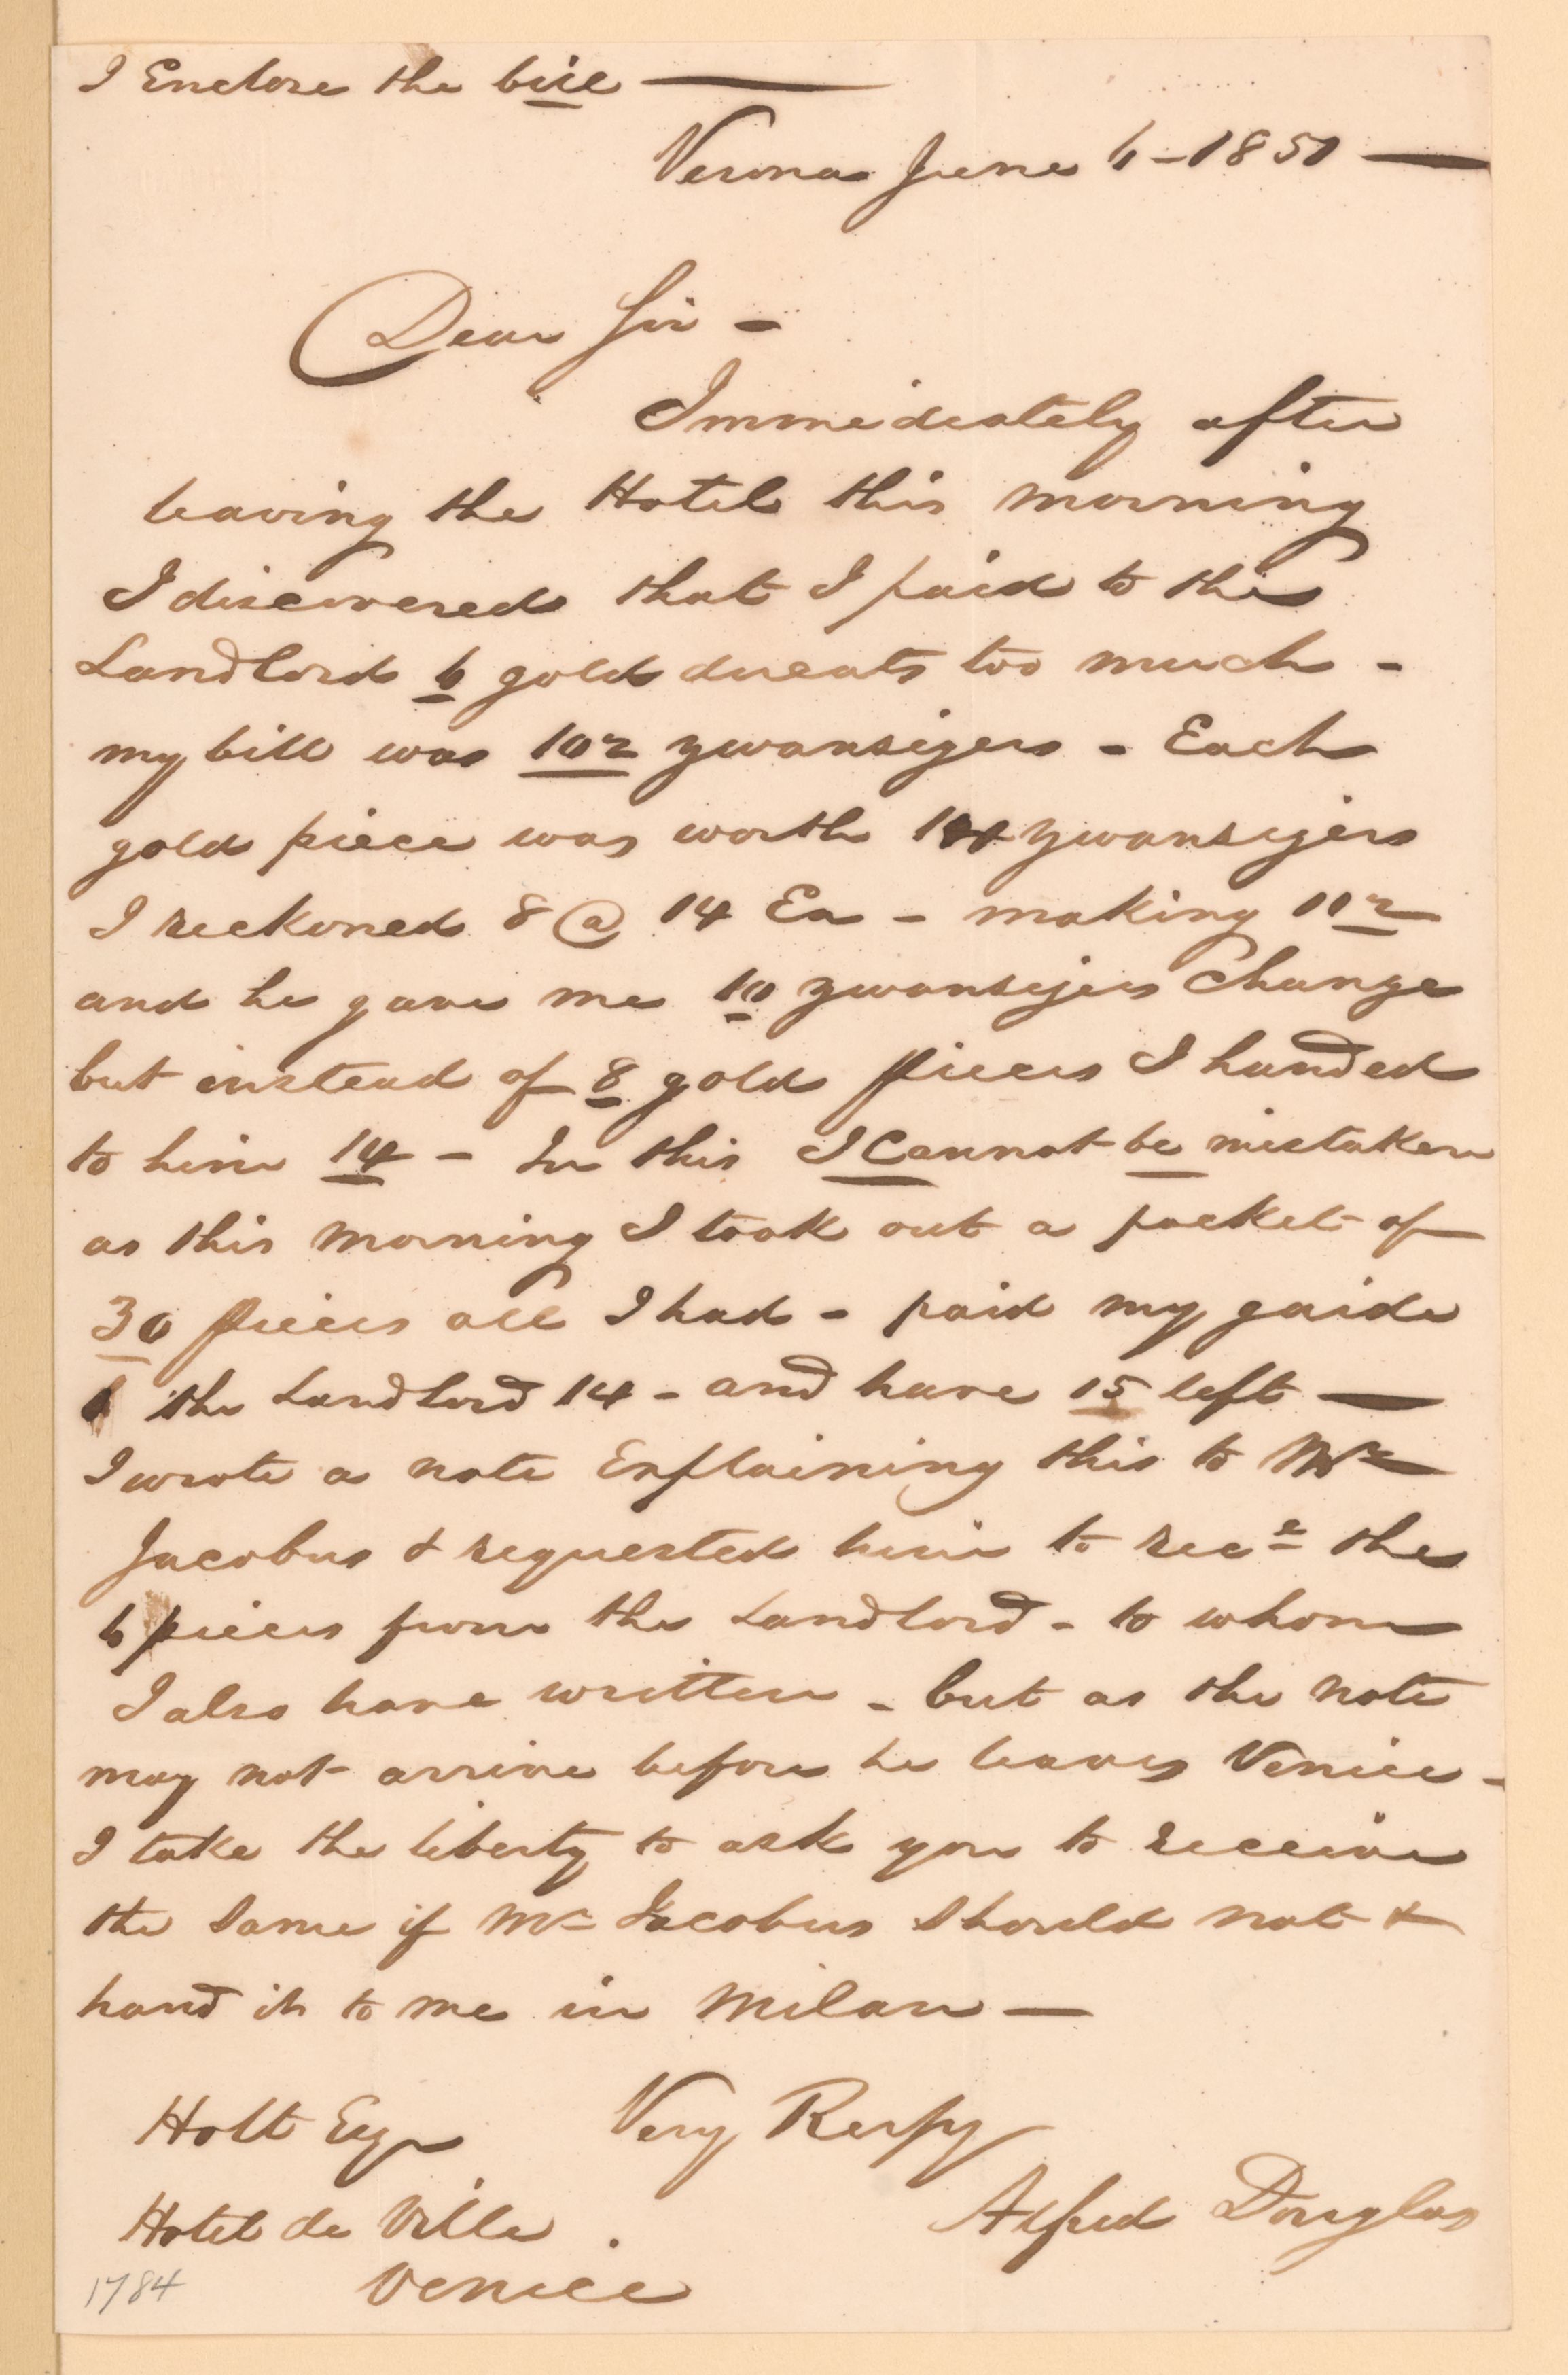 I Enclose the bill —
Verona June 6 - 1851 —
Dear Sir -
Immediately after
leaving the Hotel this morning
I discovered that I paid to the
Landlord 6 gold ducats too much -
my bill was 102 zwansigers - Each
gold piece was worth 14 zwansigers
I reckoned 8 @ 14 Ea - making 112
and he gave me 10 zwansigers change
but instead of 8 gold pieces I handed
to him 14 - In this I Cannot be mistaken
as this morning I took out a packet of
30 pieces all I had - paid my guide
1 the Landlord 14 - and have 15 left —
I wrote a note Explaining this to Mr
Jacobus & requested him to rece the
6 pieces from the Landlord - to whom
I also have written - but as the note
may not arrive before he leaves Venice -
I take the liberty to ask you to receive
the same if Mr Jacobus should not &
hand it to me in Milan —
Holt Esqr Very Respy
Alfred Douglas
Hotel de Ville
Venice
1784